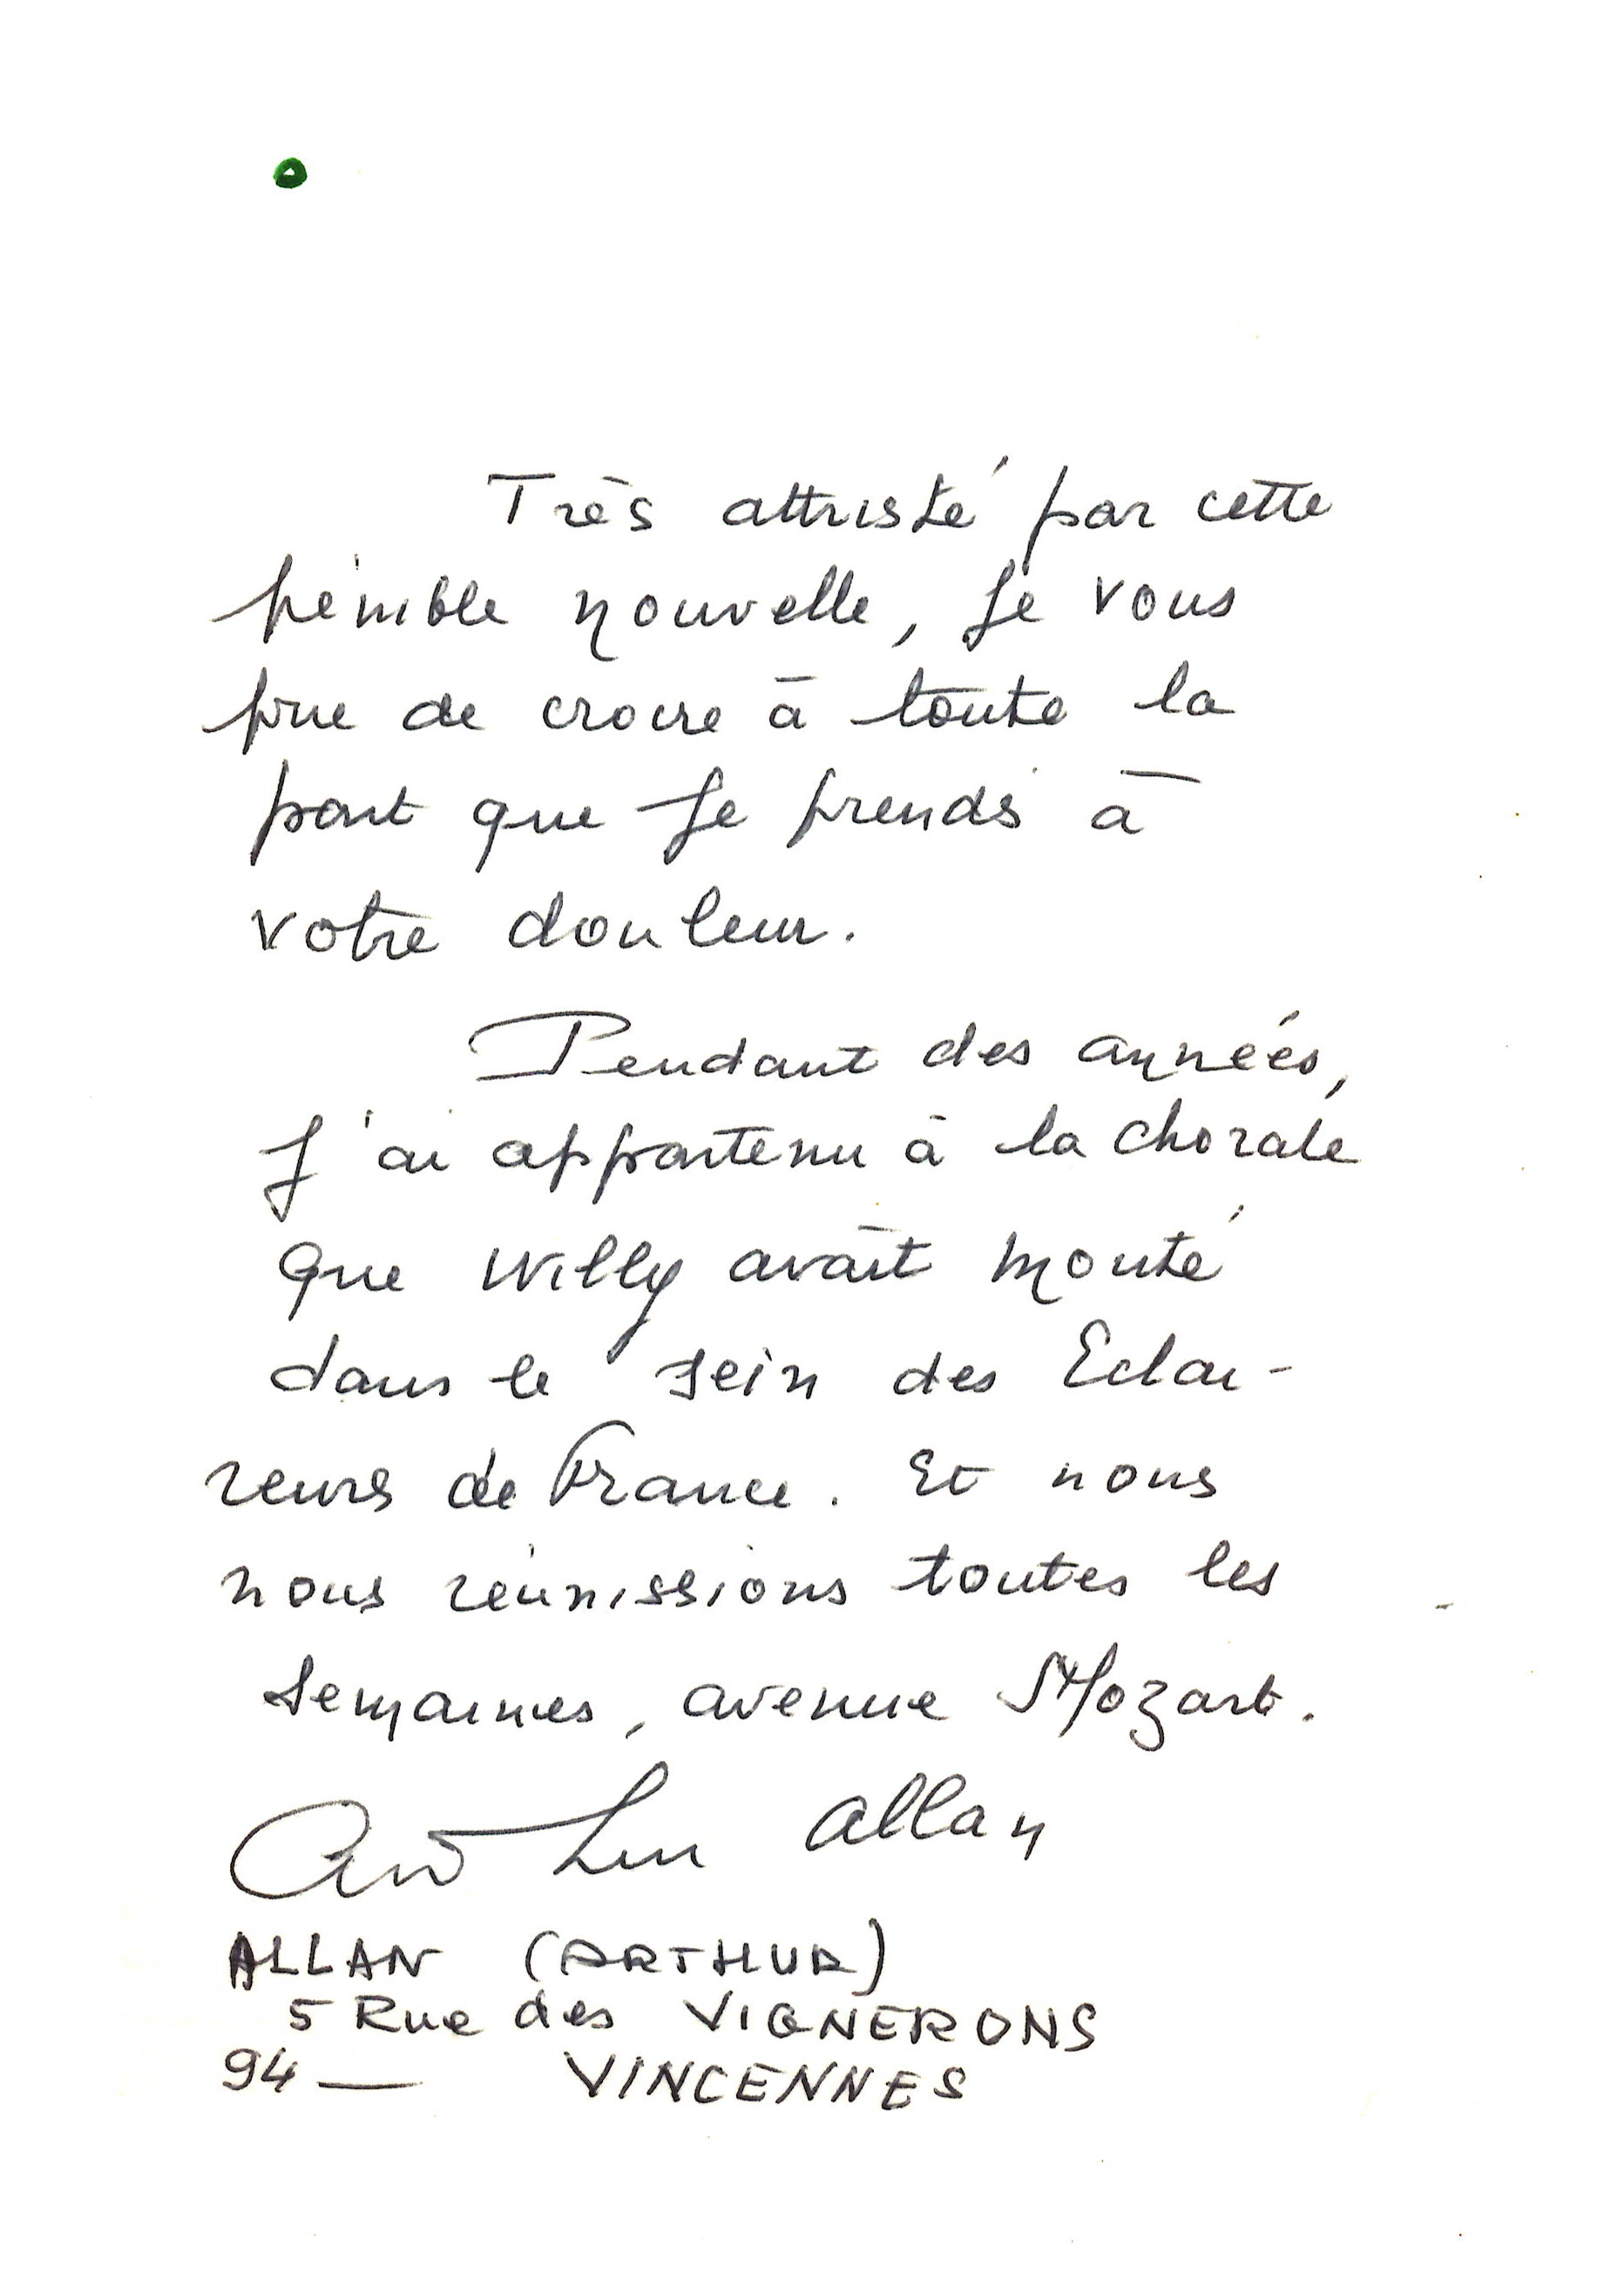 Très attristé par cette
pénible nouvelle, je vous
prie de croire à toute la
part que je prends à
votre douleur.
Pendant des années,
j'ai appartenu à la chorale
que Willy avait monté
dans le sein des Eclai-
reurs de France. Et nous
nous réunissions toutes les
semaines, avenue Mozart.
Arthur Allan
ALLAN (ARTHUR)
5 Rue des VIGNERONS
94 — VINCENNES